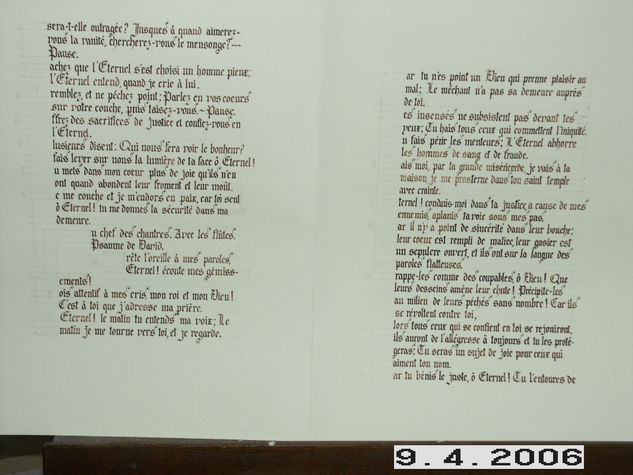 sera-t-elle outragée? Jusques à quand aimerez-
vous la vanité, chercherez-vous le mensonge?---
Pause.
achez que l'Eternel s'est choisi un homme pieux;
l'Eternel entend, quand je crie à lui.
remblez, et ne péchez point; Parlez en vos coeurs
sur votre couche, puis taisez-vous.- Pause.
ffrez des sacrifices de justice et confiez-vous en
l'Eternel.
lusieurs disent: Qui nous fera voir le bonheur?
fais lever sur nous la lumière de ta face ô Eternel!
u mets dans mon coeur plus de joie qu'ils n'en
ont quand abondent leur froment et leur moût.
e me couche et je m'endors en paix, car toi seul
ô Eternel! tu me donnes la sécurité dans ma
demeure.
u chef des chantres. Avec les flûtes.
Psaume de David.
rête l'oreille à mes paroles
Eternel! écoute mes gémiss-
ements!
ois attentif à mes cris, mon roi et mon Dieu!
C'est à toi que j'adresse ma prière.
Eternel! le matin tu entends ma voix; Le
matin je me tourne vers toi, et je regarde.
ar tu n'es point un Dieu qui prenne plaisir au
mal; Le méchant n'a pas sa demeure auprès
de toi.
es insensés ne subsistent pas devant tes
yeux; Tu hais tous ceux qui commettent l'iniquité.
u fais périr les menteurs; L'Eternel abhorre
les hommes de sang et de fraude.
ais moi, par ta grande miséricorde, je vais à ta
maison, je me prosterne dans ton saint temple
avec crainte.
ternel! conduis moi dans ta justice, a cause de mes
ennemis, aplanis ta voie sous mes pas.
ar il n'y a point de sincérité dans leur bouche;
leur coeur est rempli de malice, leur gosier est
un sépulcre ouvert, et ils ont sur la langue des
paroles flatteuses.
rappe-les comme des coupables, ô Dieu! Que
leurs desseins amène leur chute! Précipite-les
au milieu de leurs péchés sans nombre! Car ils
se révoltent contre toi.
lors tous ceux qui se confient en toi se rejouiront,
ils auront de l'allégresse à toujours et tu les proté-
geras; Tu seras un sujet de joie pour ceux qui
aiment ton nom.
ar tu bénis le juste, ô Eternel! Tu l'entoures de
9.4.2006